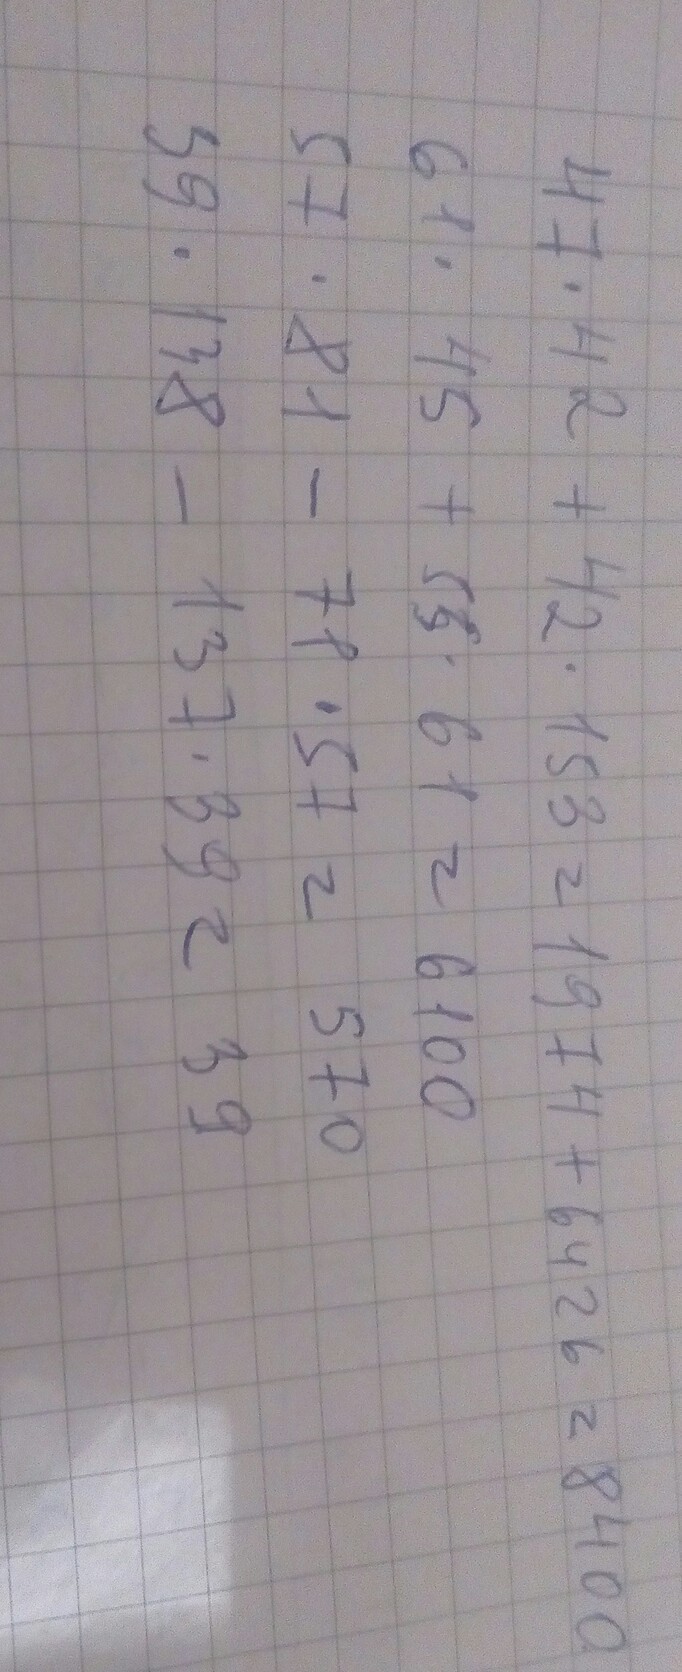 47·42 + 42·153 = 1974 + 6426 = 8400
61·45 + 55·61 = 6100
57·81 - 71·57 = 570
39·138 - 137·39 = 39